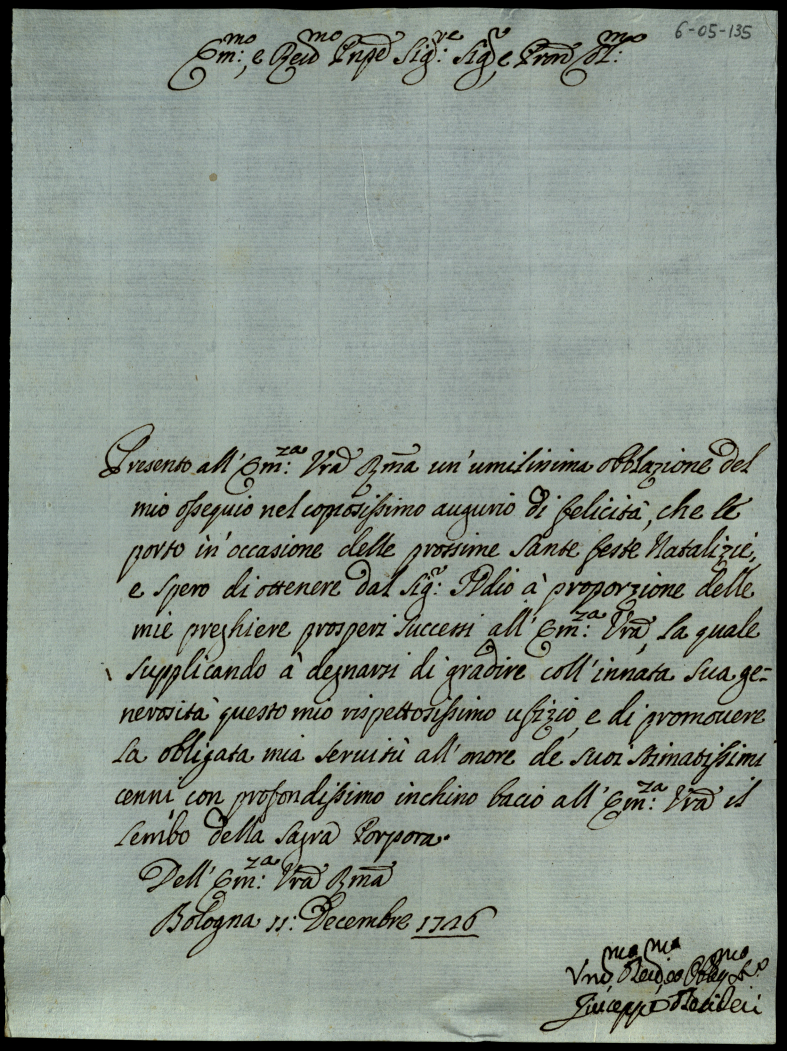 6-05-135
Em:mo, e Revdmo Pnpe Sig:re Sigr, e Pron Col:mo
Presento all' Em:za Vra Rma un' umilissima obblazione del
mio ossequio nel copiosissimo augurio di felicità, che le
porto in' occasione delle prossime Sante feste Natalizie,
e spero di ottenere dal Sigr: Iddio à proporzione delle
mie preghiere prosperi successi all' Em:za Vra, la quale
supplicando à degnarsi di gradire coll' innata sua ge=
nerosità questo mio rispettosissimo ufizio, e di promovere
la obligata mia servitù all' onore de suoi stimatissimi
cenni, con profondissimo inchino bacio all' Em:za Vra il
lembo della Sagra Porpora.
Dell' Em:za Vra Rma
Bologna 11: Decembre 1726
Giuseppe